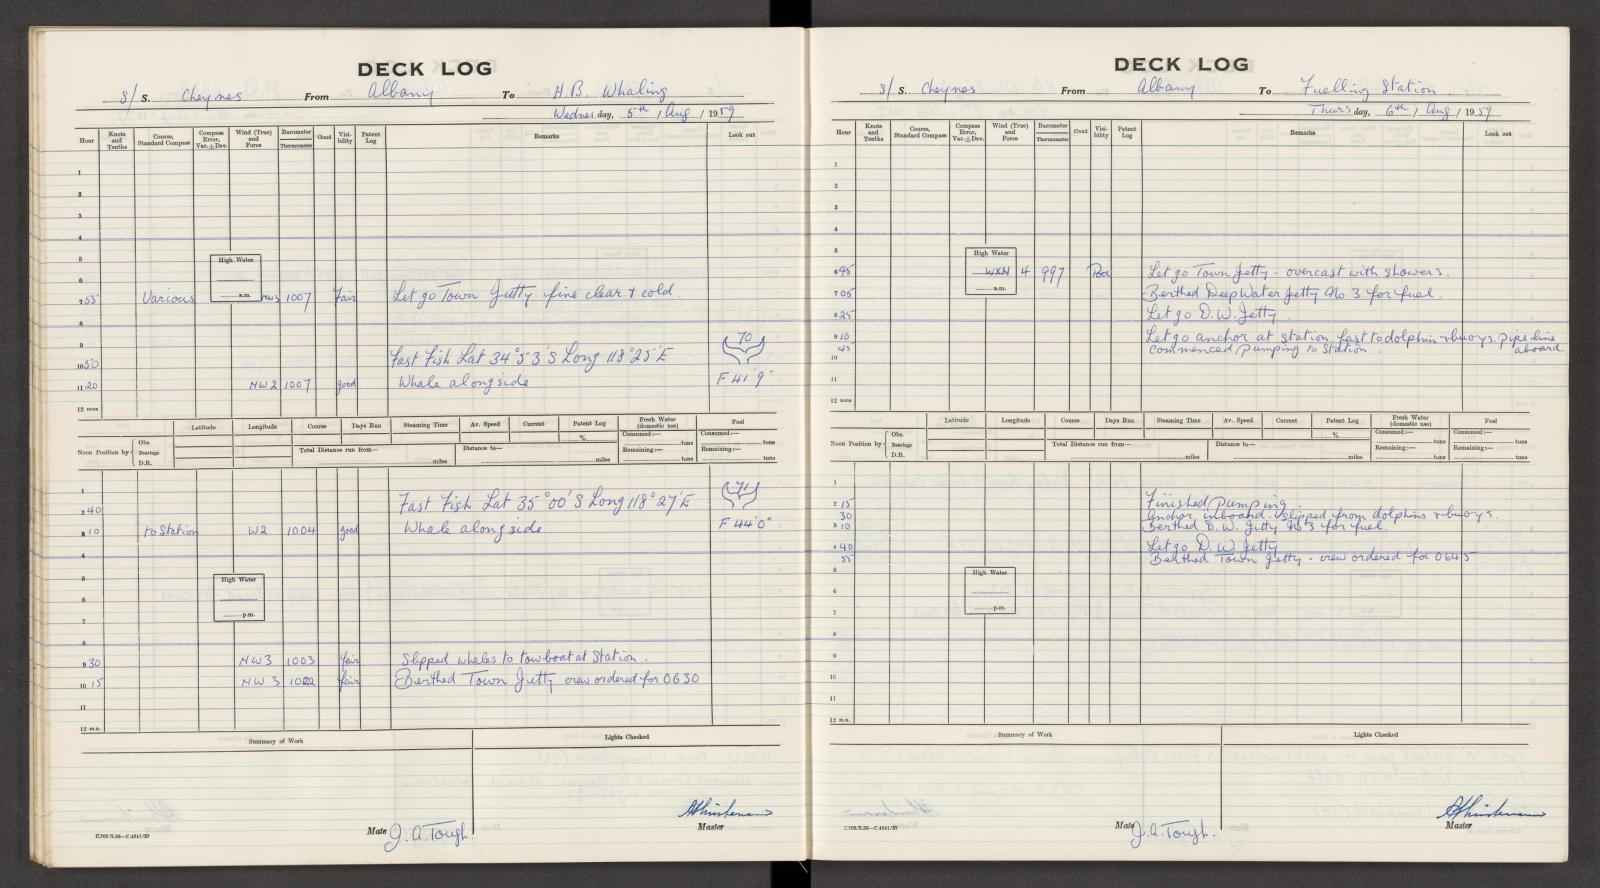 DECK LOG
S/ S. Cheynes From Albany To H.B. Whaling
Wednesday, 5th / Aug / 1959
Hour Knots and Tenths Course, Standard Compass Compass Error, Var. ± Dev. Wind (True) and Force Barometer Thermometer Cloud Visibility Patent Log Remarks Look out
1
2
3
4
5 High Water
6
7 55 Various a.m. NW3 1007 Fair Let go Town Jetty fine clear + cold.
8
9 70
10 50 Fast Fish Lat 34°53'S Long 118°25'E
11 20 NW2 1007 good Whale alongside F 41'9"
12 noon
Latitude Longitude Course Days Run Steaming Time Av. Speed Current Patent Log Fresh Water (domestic use) Fuel
% Consumed:— tons Consumed:— tons
Noon Position by Obs. Bearings D.R. Total Distance run from— miles Distance to— miles Remaining:— tons Remaining:— tons
1 71
2 40 Fast Fish Lat 35°00'S Long 118°27'E
3 10 to Station W2 1004 good Whale alongside F 44'0"
4
5 High Water
6
7 p.m.
8
9 30 NW3 1003 fair Slipped whales to towboat at Station.
10 15 NW3 1002 fair Berthed Town Jetty crew ordered for 0630
11
12 m.n.
Summary of Work Lights Checked
C.705/2.58—C.4641/57 Mate J. A. Tough. Master
DECK LOG
S/ S. Cheynes From Albany To Fuelling Station.
Thursday, 6th / Aug / 1959
Hour Knots and Tenths Course, Standard Compass Compass Error, Var. ± Dev. Wind (True) and Force Barometer Thermometer Cloud Visibility Patent Log Remarks Look out
1
2
3
4
5 High Water
6 45 4 997 Let go Town Jetty - overcast with showers.
7 05 a.m. Berthed Deep Water Jetty No 3 for fuel.
8 25 Let go D.W. Jetty.
9 10 Let go anchor at station fast to dolphin + buoys. pipe line
45 commenced pumping to Station. aboard.
10
11
12 noon
Latitude Longitude Course Days Run Steaming Time Av. Speed Current Patent Log Fresh Water (domestic use) Fuel
% Consumed:— tons Consumed:— tons
Noon Position by Obs. Bearings D.R. Total Distance run from— miles Distance to— miles Remaining:— tons Remaining:— tons
1
2 15 Finished pumping
30 anchor inboard. slipped from dolphins + buoys.
3 10 Berthed D.W. Jetty No 3 for fuel.
4 40 Let go D.W. Jetty
55 Berthed Town Jetty - crew ordered for 0645
5 High Water
6
7 p.m.
8
9
10
11
12 m.n.
Summary of Work Lights Checked
C.705/2.58—C.4641/57 Mate J. A. Tough. Master